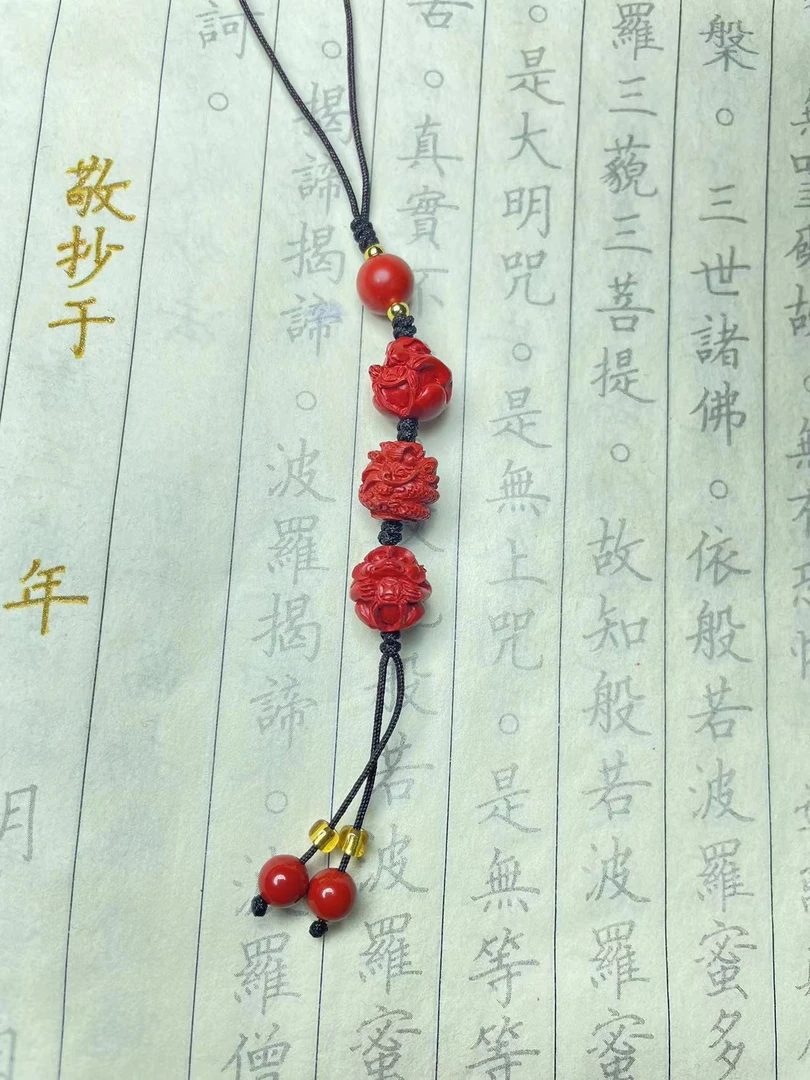 無罣礙故。無有恐怖
槃。三世諸佛。依般若波羅蜜多
羅三藐三菩提。故知般若波羅蜜
。是大明咒。是無上咒。是無等等
苦。真實不 般若波羅蜜
。揭諦揭諦。波羅揭諦。波羅僧
訶。
敬抄于
年
月